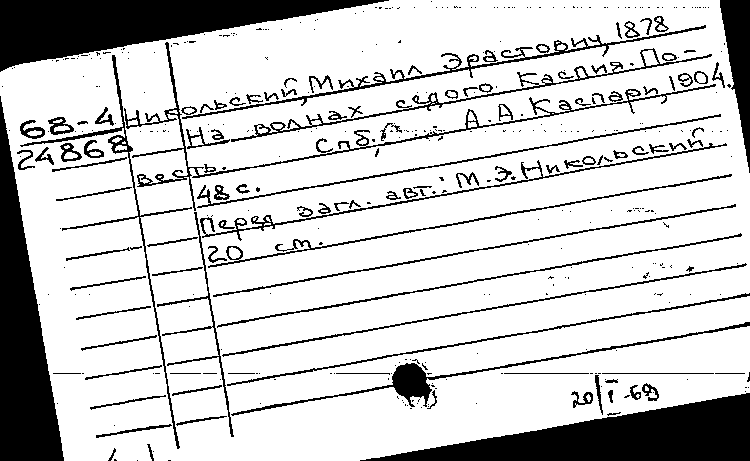 68-4
24868
Никольский, Михаил Эрастович, 1878
На волнах седого Каспия. По-
весть. Спб., А.А. Каспари, 1904.
48 с.
Перед загл. авт.: М.Э. Никольский.
20 см.
20/I-69